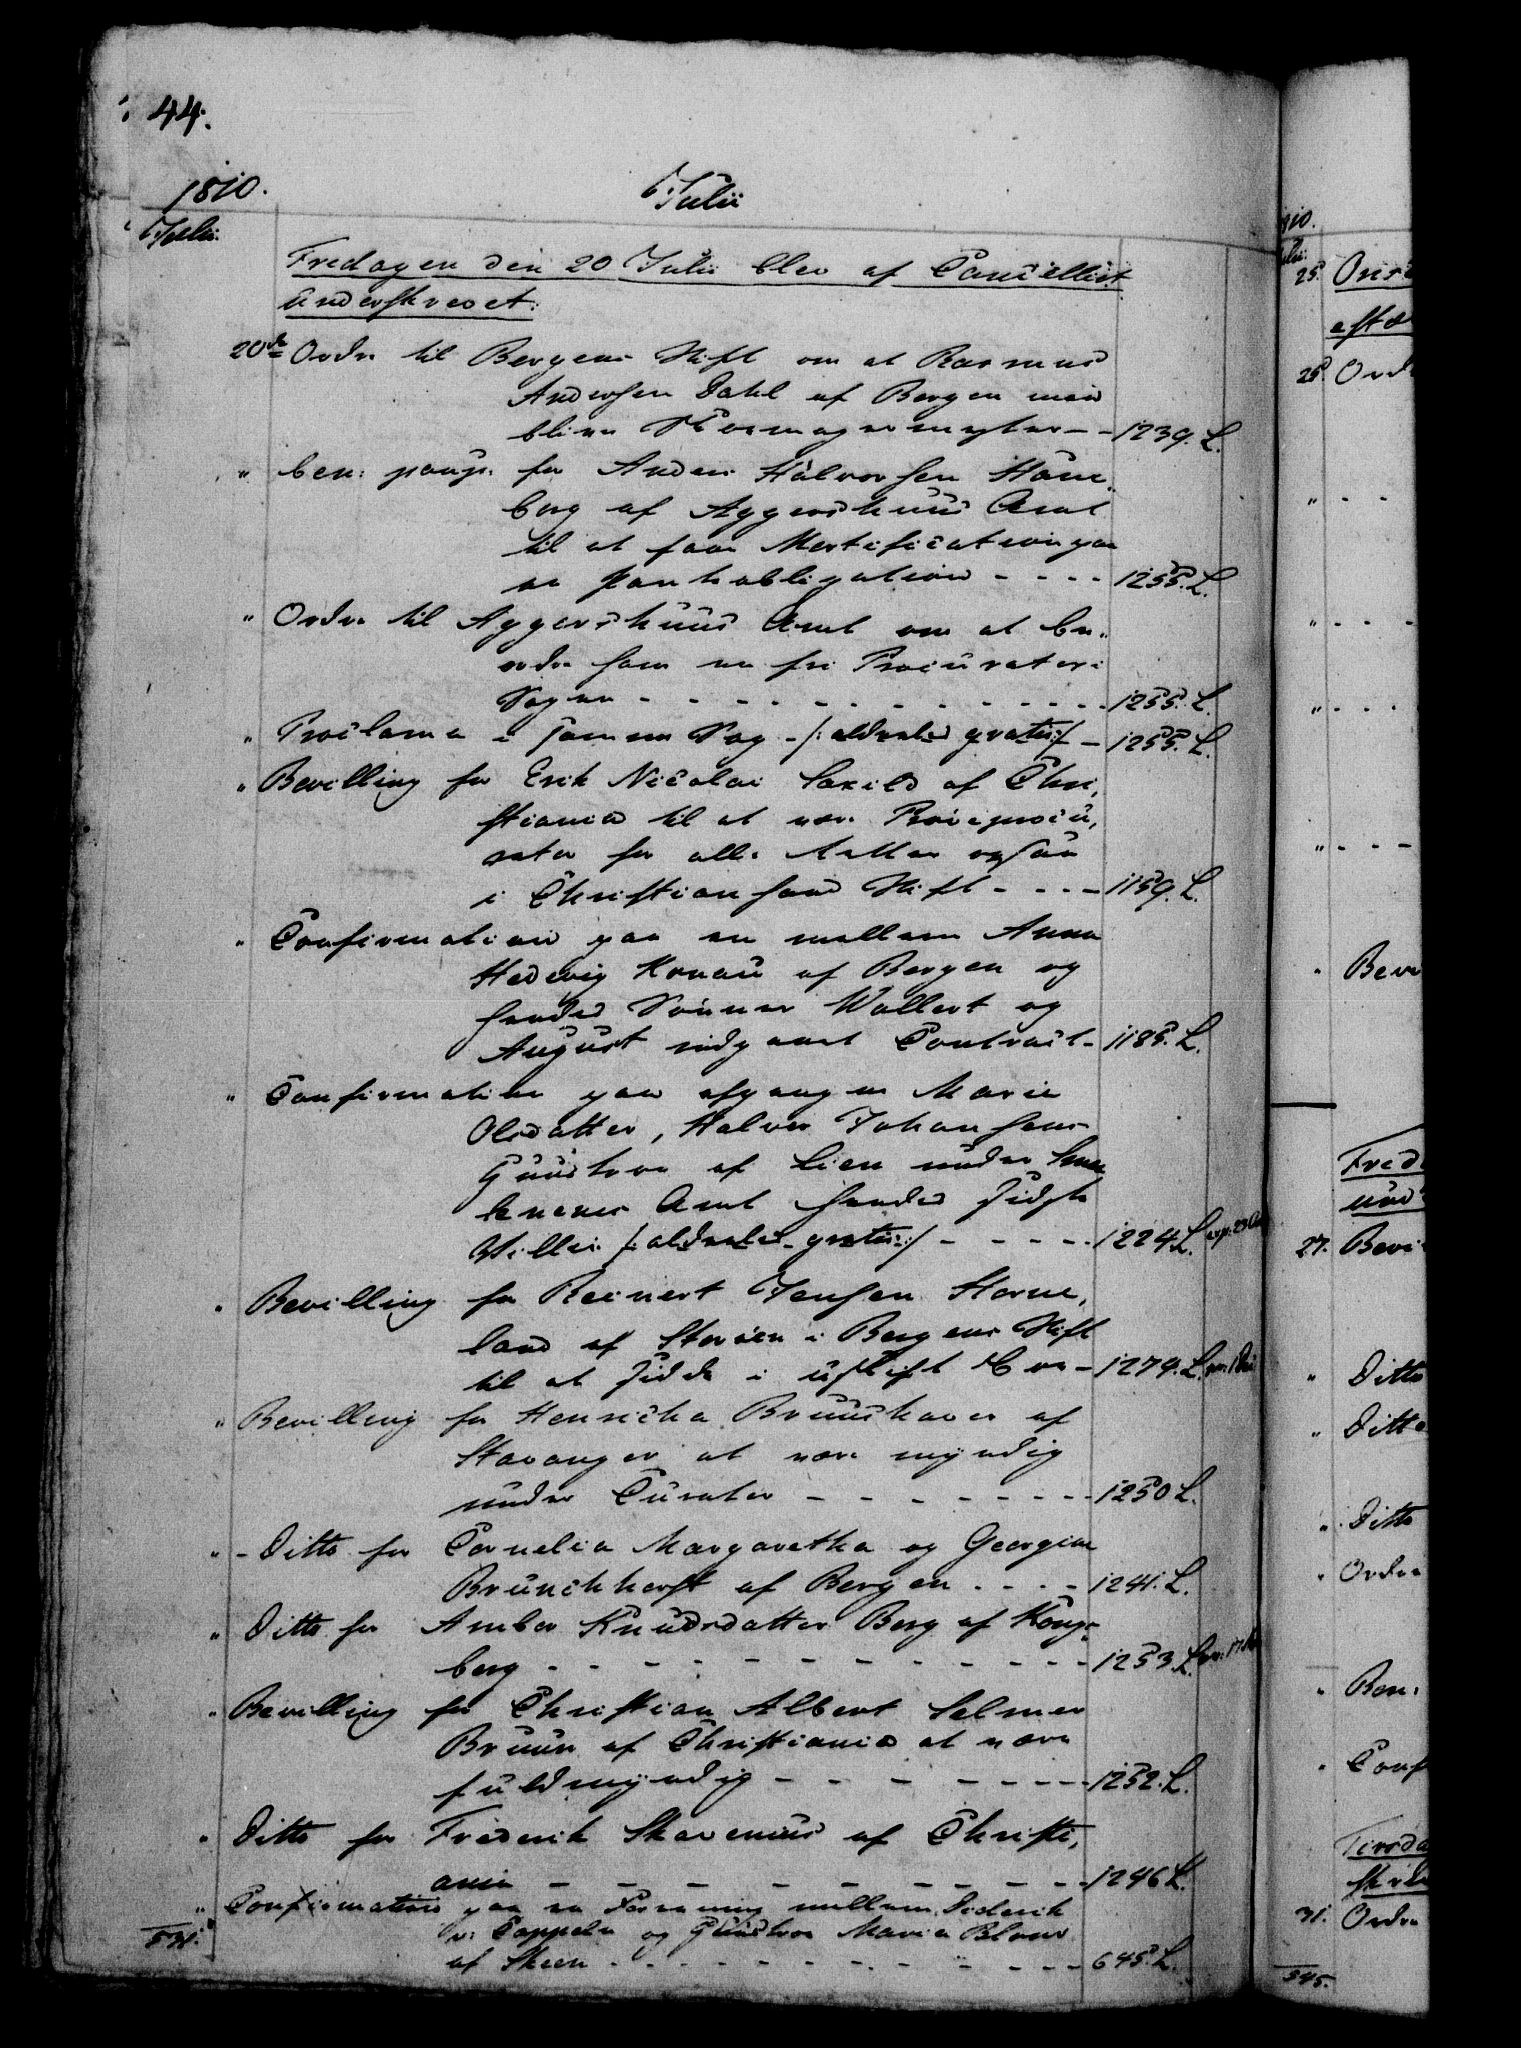 44.
1810.
Julii
Julii.
Fredagen den 20 Julii blev af Cancelliet
underskrevet:
20de Ordre til Bergens Stift om at Rasmus
Andersen Dahl af Bergen maa
blive Skoemagermester - - 1239. L.
" ben: paup: for Anders Halvorsen
borg af Aggershuus Amt
til at faae Mortification paa
en Pantobligation - - - - 1255. L.
" Ordre til Aggershuus Amt om at be-
ordre ham en fri Procurator i
Sagen - - - - - - - - - - 1255. L.
" Proclama i samme Sag /: aldeles gratis :/ - 1255. L.
" Bevilling for Erik Nicolai Saxild af Chri,
stiania til at være Prøveprocu,
rator for alle Retter ogsaa
i Christiansand Stift - - - - 1159. L.
" Confirmation paa en mellem Anna
Hedevig Konau af Bergen og
hendes Sønner Wollert og
August indgaaet Contract - 1185. L.
" Confirmation paa afgangne Marie
Olsdatter, Halvor Johansens
Huustroe af Lien under Smaa
lenenes Amt hendes sidste
Villie /: aldeles gratis :/ - - - - - 1224. L. exp. 23
" Bevilling for Reinert Jensen Horne,
land af Storøen i Bergens Stift
til at sidde i uskift Boe - 1279. L.
" Bevilling for Henricha Bruushaver af
Stavanger at være myndig
under Curator - - - - - - - - 1250 L.
" - Ditto for Cornelia Margaretha og Georgine
Brunchhorst af Bergen - - - - 1241. L.
" Ditto for Amber Knudsdatter Berg af Kongs-
berg - - - - - - - - - - - 1253. L.
" Bevilling for Christian Albert Selmer
Bruun af Christiania at være
fuldmyndig - - - - - - - - 1252. L.
" Ditto for Friderik Skavenius af Christi,
ania - - - - - - - - - - 1246 L.
" Confirmation paa en Forening mellem Diderik
v: Cappeln og Huustroe Maria Blom
af Skeen - - - - - - - - - - 645. L.
531.
25.
25. Ord
Beve
Fred
und
27. Bevi
" Ditto
" Ditto
" Ditto
" Ordre
" Ben:
" Conf
Tirsda
31. Ordre
545.